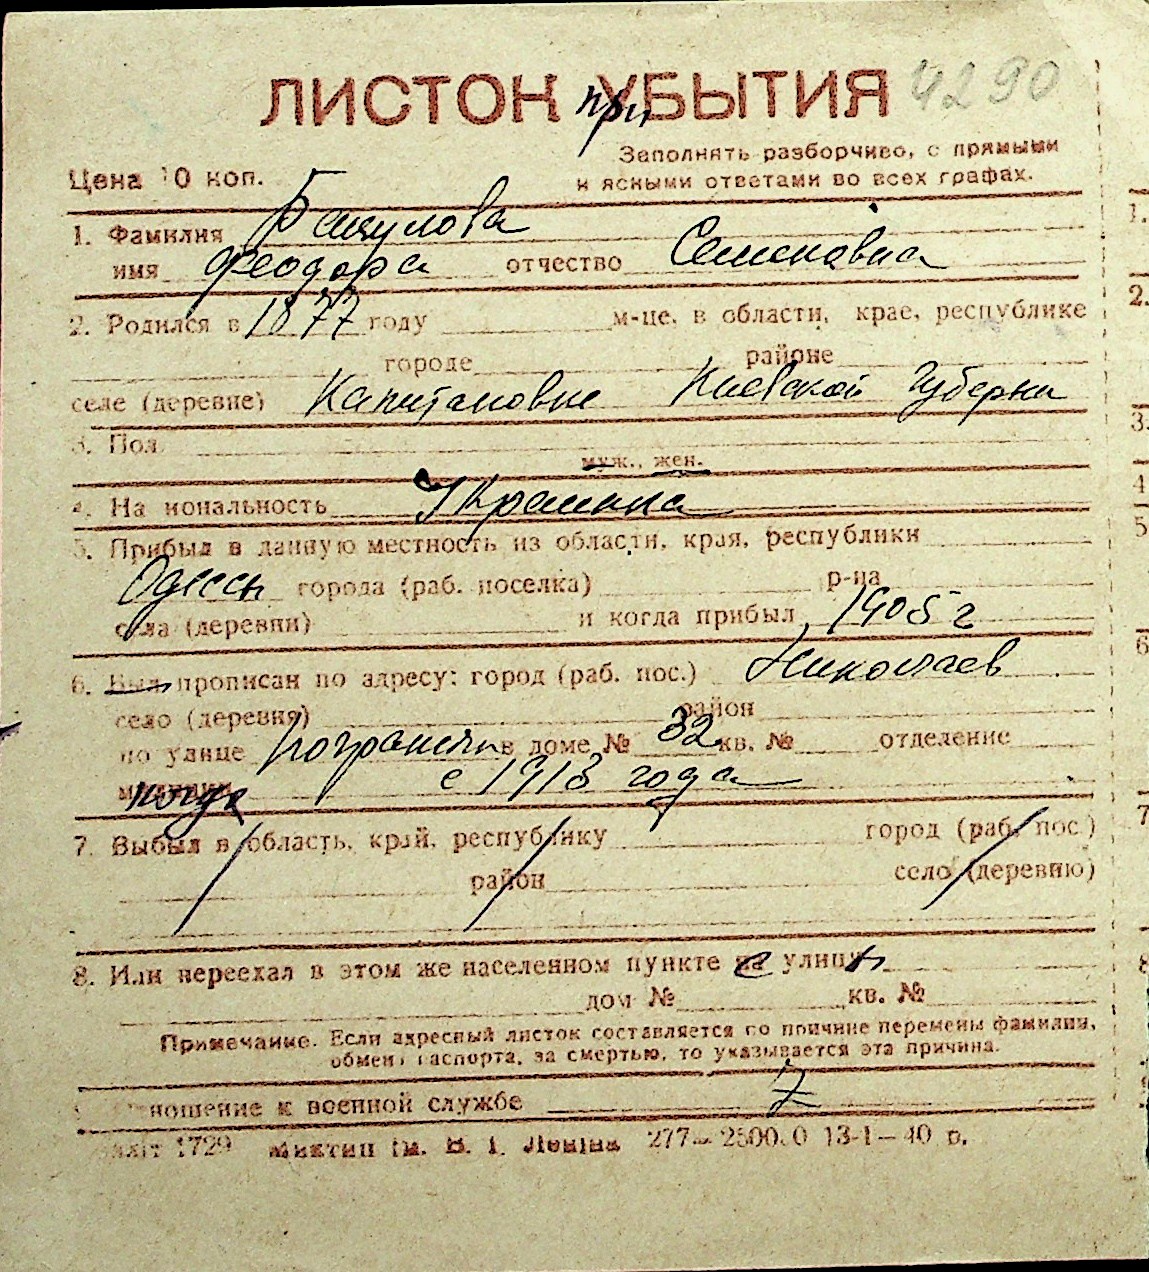 ЛИСТОК при УБЫТИЯ 4290
Цена 10 коп.
Заполнять разборчиво, с прямыми
и ясными ответами во всех графах.
1. Фамилия Бакулова
имя Феодора отчество Семеновна
2. Родился в 1877 году м-це, в области, крае, республике
городе районе
селе (деревне) Капитановке Киевской Губерни
3. Пол
муж., жен.
4. На иональность Украинка
5. Прибыл в данную местность из области, края, республики
Одессы города (раб. поселка) р-на
села (деревни) и когда прибыл 1905 г
6. Был прописан по адресу: город (раб. пос.) Николаев
село (деревня) район
по улице Пограничн в доме № 32 кв. № отделение
милиции когда с 1913 года
7. Выбыл в область, край, республику город (раб. пос.)
район село (деревню)
8. Или переехал в этом же населенном пункте с улицы
дом № кв. №
Примечание. Если адресный листок составляется по причине перемены фамилии,
обмена паспорта, за смертью, то указывается эта причина.
ношение к военной службе
1729 ім. В. І. Леніна 277— 2500.0 13-1—40 р.
1.
2.
3.
4
5
6
7
8